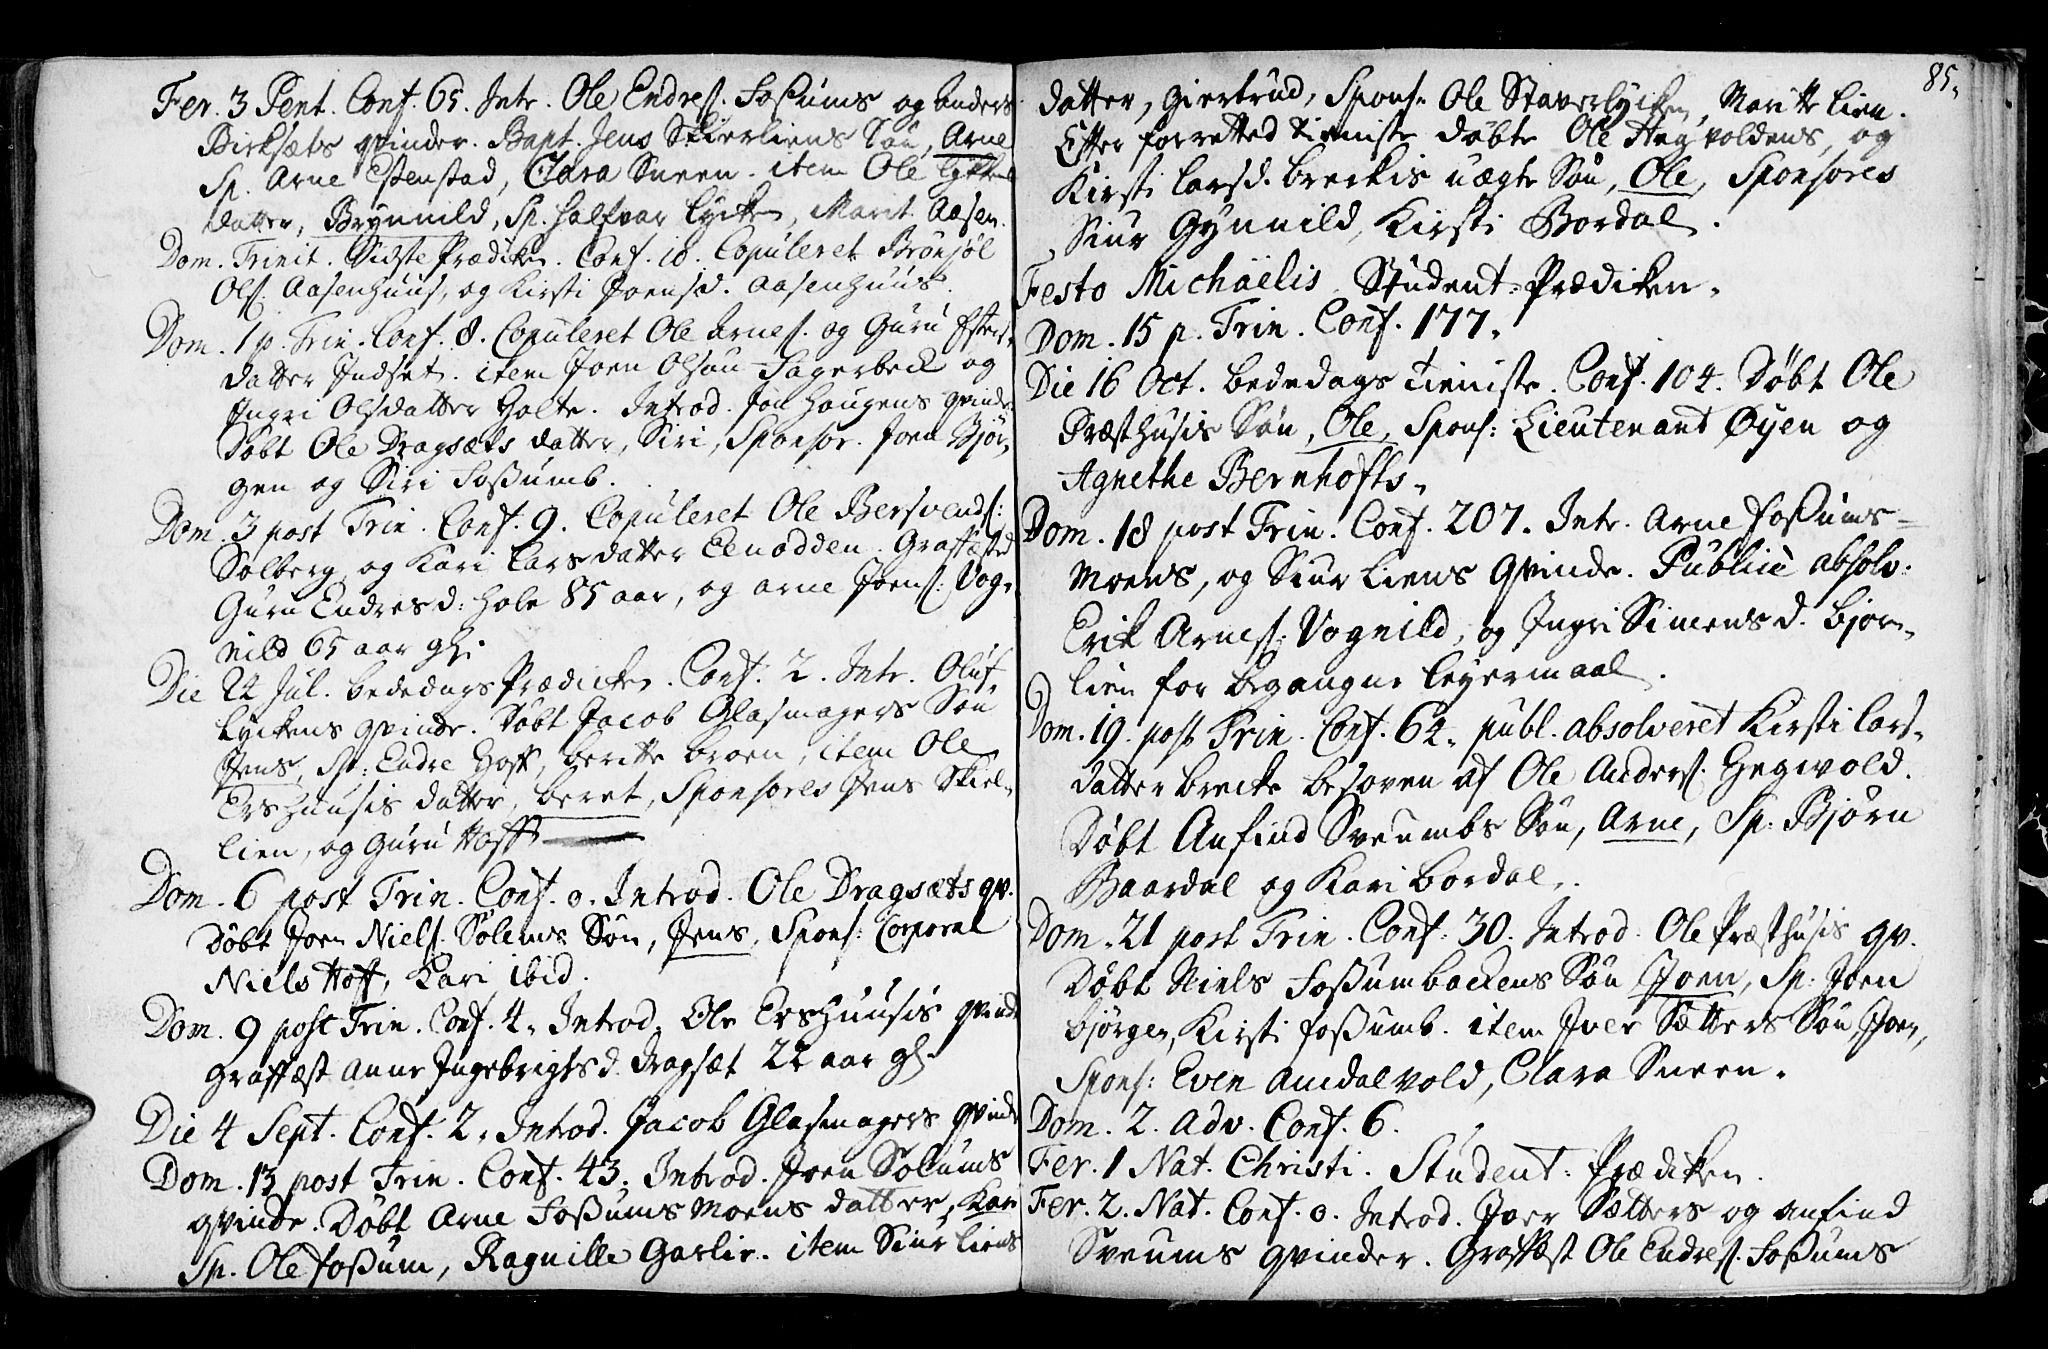 Fer. 3 Pent. Conf. 65. Intr. Ole Endres. Foßums og Anders
Birksæts qvinder. Bapt. Jens Skierliens Søn, Arne
Sp. Arne Estenstad, Clara Sneen. item Ole Lykkens
datter, Brynnild, Sp. Halfvar Lycken, Marit Aasen.
Dom. Trinit. Sidste Prædiken. Conf. 10. Copuleret Brönjöl
Ols. Aasenhuus, og Kirsti Joensd. Aasenhuus.
Dom. 1 p. Trin. Conf. 8. Copuleret Ole Arnes. og Guru Estens
datter Indset. item Joen Olsøn Sagerbeck og
Ingri Olsdatter Holte. Introd. Jon Haugens qvinde
Døbt Ole Dragsæts datter, Siri, Sponsor. Joen Bjør,
gen og Siri Foßumb.
Dom. 3 post Trin. Conf. 9. Copuleret Ole Bersvends:
Solberg og Kari Larsdatter Eenodden. Graffæsted
Guru Endresd: Hole 85 aar, og Arne Joens: Vog,
nild 65 aar gl.
Die 22 Jul. Bededags Prædicken. Conf. 2. Intr. Oluf
Lyckens qvinde. Døbt Jacob Glasmagers Søn
Jens, Sp: Endre Hoff, Beritte Broen, item Ole
Ershuusis datter, Beret, Sponsores Jens Skiel,
lien, og Guru Hoff
Dom. 6 post Trin. Conf. 0. Introd. Ole Dragsæts qv.
Døbt Joen Niels. Solems Søn, Jens, Spons: Corporal
Niels Hoff, Kari ibid.
Dom. 9 post Trin. Conf. 4. Introd. Ole Ershuusis qvinde
Graffæst Anne Ingebrigtsd. Dragsæt 22 aar gl.
Die 4 Sept. Conf. 2. Introd. Jacob Glasmagers qvinde
Dom. 13 post Trin. Conf. 43. Introd. Joen Solums
qvinde. Døbt Arne Foßums Moens datter, Kari
Sp. Ole Foßum, Ragnille Garlie. item Siur Liens
85.
datter, Giertrud, Spons. Ole Staverlycken, Maritte Lien.
Efter forretted tieniste døbte Ole Hegvoldens, og
Kirsti Larsd. Breckis uægte Søn, Ole, Sponsores
Siur Gynnild, Kirsti Bordal.
Festo Michaëlis Student-Prædiken.
Dom. 15 p. Trin. Conf. 177.
Die 16 Oct. Bededags tieniste. Conf. 104. Døbt Ole
Præsthusis Søn, Ole, Spons: Lieutenant Øyen og
Agnethe Bernhofts.
Dom. 18 post Trin. Conf. 207. Intr. Arne Foßums-
Moens, og Siur Liens qvinde. Publicè absolv:
Erik Arnes: Vognild, og Ingri Simensd. Bjør,
lien for begangne leyermaal.
Dom. 19 post Trin. Conf. 62. publ. absolveret Kirsti Lars,
datter Brecke besoven af Ole Anders. Hegwold.
Døbt Anfind Sveumbs Søn, Arne, Sp. Bjørn
Baardal og Kari Bordal.
Dom. 21 post Trin. Conf. 30. Introd. Ole Præsthusis qv.
Døbt Niels Foßumbackens Søn Joen, Sp. Joen
Bjørgen, Kirsti Foßumb. item Iver Sætters Søn Joen,
Spons: Even Amdalvold, Clara Sneen.
Dom. 2. Adv. Conf. 6.
Fer. 1 Nat. Christi. Student-Prædiken.
Fer. 2. Nat. Conf. 0. Introd. Iver Sætters og Anfind
Sveums qvinder. Graffæst Ole Endres. Foßums